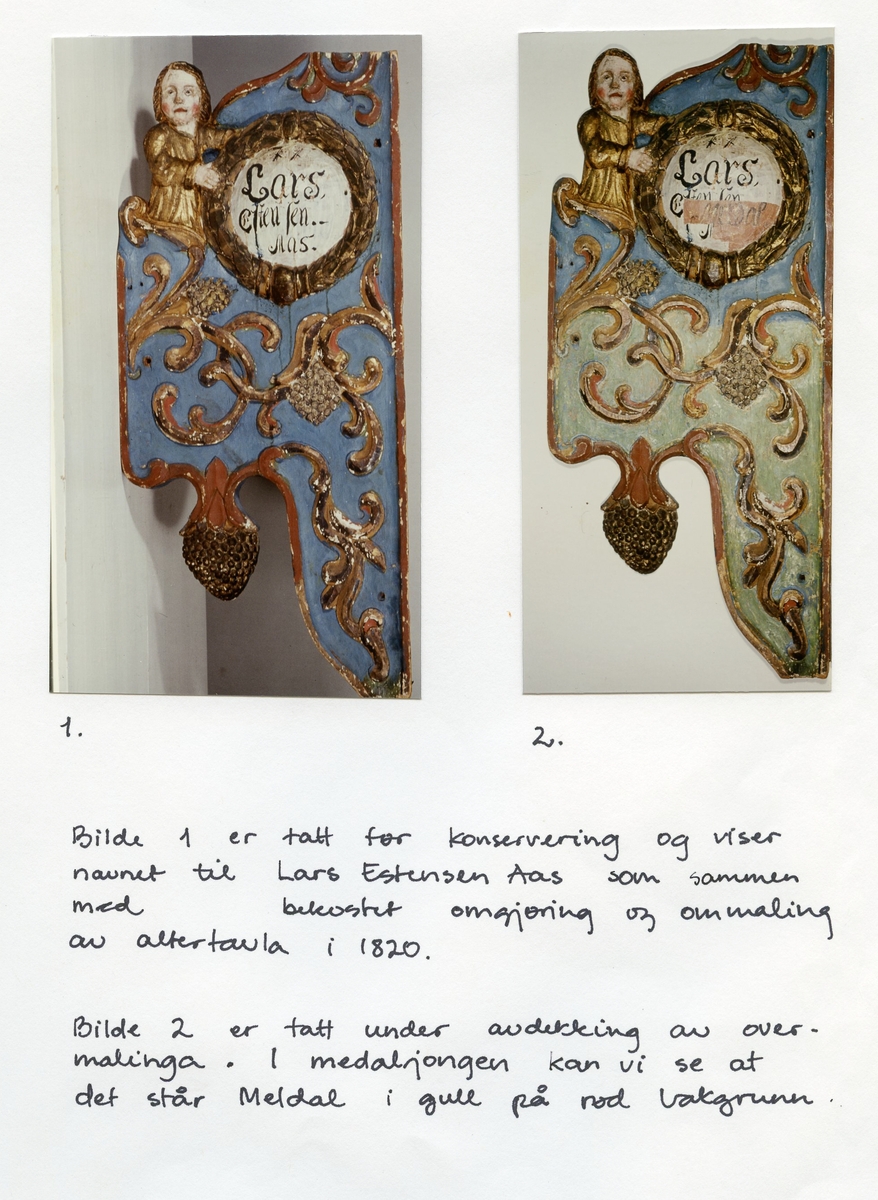 Lars
Esten sen
Aas.
Lars
Esten sen
Meldal
1.
2.
Bilde 1 er tatt før konservering og viser
navnet til Lars Estensen Aas som sammen
med bekostet omgjøring og ommaling
av altertavla i 1820.
Bilde 2 er tatt under avdekking av over-
malinga. I medaljongen kan vi se at
det står Meldal i gull på rød bakgrunn.